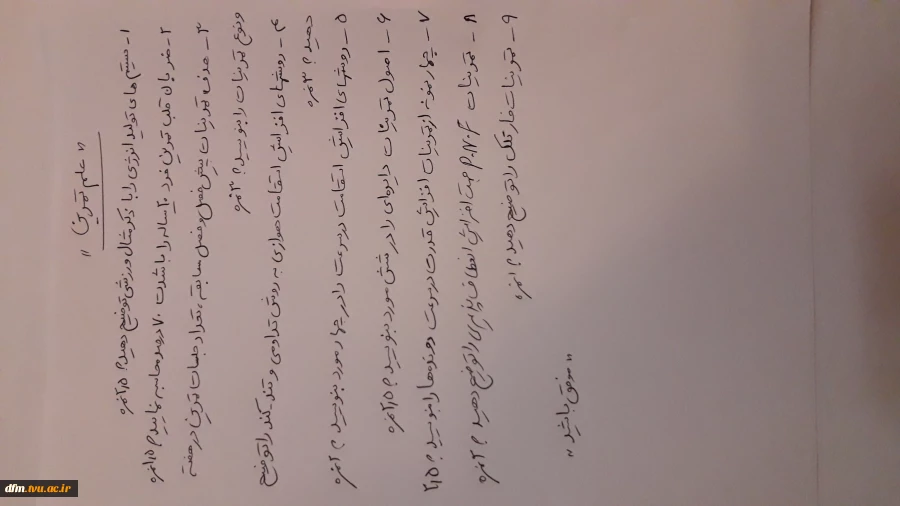 « علم تمرین »
۱- سیستم های تولید انرژی را با ذکر مثال ورزشی توضیح دهید؟ ۲/۵ نمره
۲- ضربان قلب تمرین فرد ۲۰ ساله را با شدت ۷۰ درصد محاسبه نمایید؟ ۱/۵ نمره
۳- هدف تمرینات پیش فصل و فصل مسابقه، تعداد جلسات تمرین در هفته
و نوع تمرینات را بنویسید؟ ۳ نمره
۴- روشهای افزایش استقامت هوازی به روش تداومی و تند کند را توضیح
دهید؟ ۳ نمره
۵- روشهای افزایش استقامت در سرعت را در چهار مورد بنویسید؟ ۲ نمره
۶- اصول تمرینات دایره‌ای را در شش مورد بنویسید؟ ۲/۵ نمره
۷- چهار نمونه از تمرینات افزایش قدرت در سرعت دونده‌ها را بنویسید؟ ۲/۵
۸- تمرینات P.N.F جهت افزایش انعطاف پذیری را توضیح دهید؟ ۲ نمره
۹- تمرینات فارتلک را توضیح دهید؟ ۱ نمره
« موفق باشید »
dfm.tvu.ac.ir